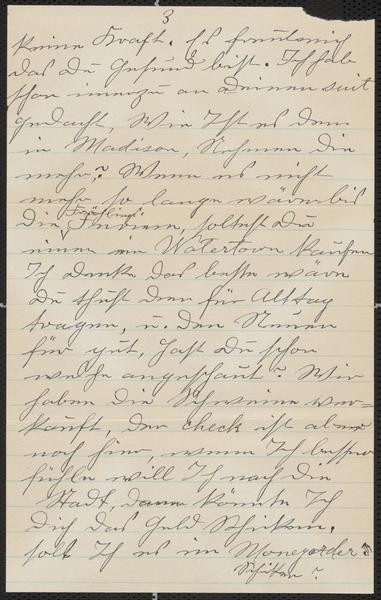 3
keine Kraft. Es freut mich
das Du Gesund bist. Ich hab
schon immerzu an Deinen suit
gedacht, Wie Ist es denn
in Madison, Nehmen Die
mehr? Wenn es nicht
mehr so lange wäre bis
Die Früchlings Ferien, solltest Du
einen in Watertown kaufen
Ich denke das beste wäre
Du thust den für Alltag
tragen, u. den Neuen
für gut, hast Du schon
welche angeschaut? Wir
haben die Schweine ver-
kauft, der check ist aber
noch hier, wenn Ich besser
fühle will Ich nach die
Stadt, dann könnte Ich
Dich das Geld Schicken.
soll Ich es im Moneyorder
Schicken?